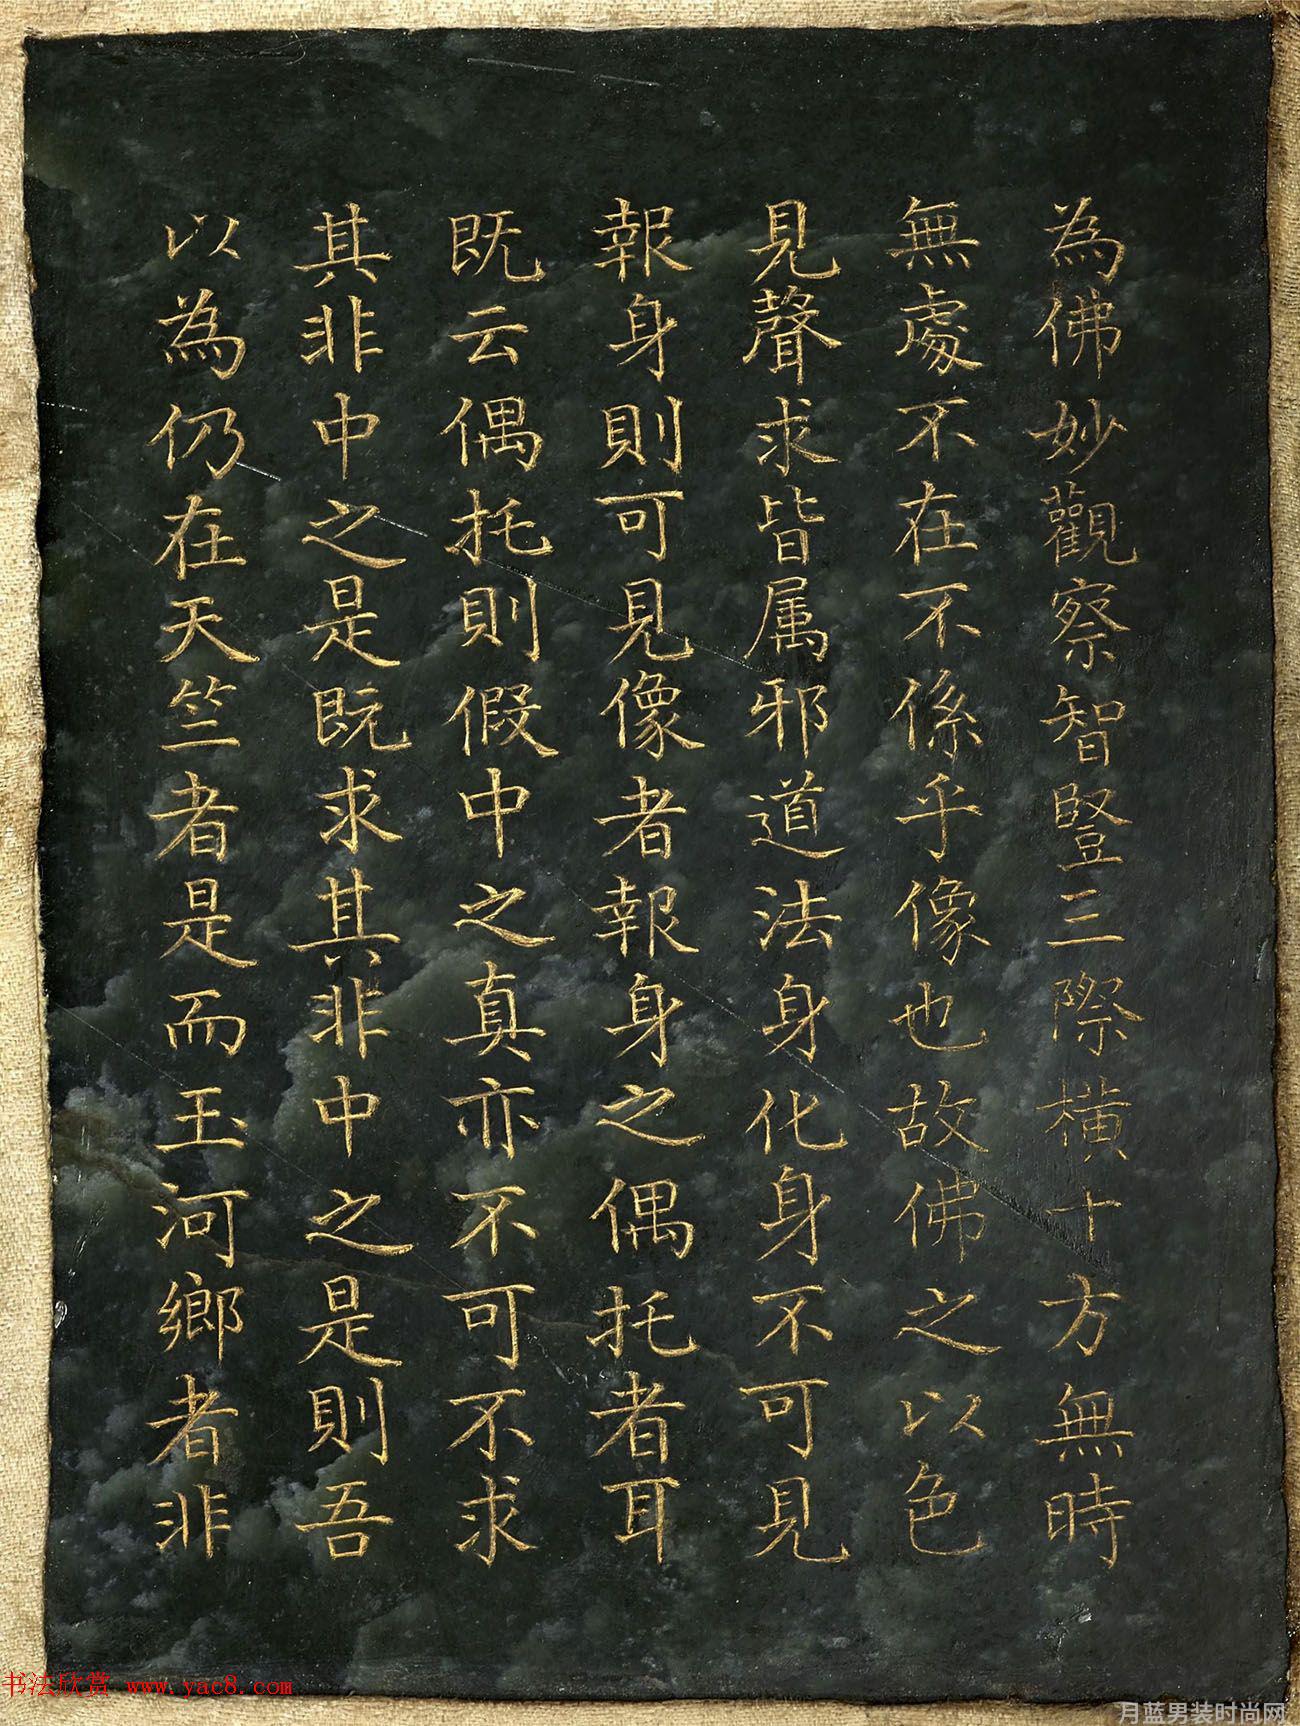 為佛妙觀察智豎三際橫十方無時
無處不在不係乎像也故佛之以色
見聲求皆属邪道法身化身不可見
報身則可見像者報身之偶托者耳
既云偶托則假中之真亦不可不求
其非中之是既求其非中之是則吾
以為仍在天竺者是而玉河鄉者非
书法欣赏 www.yac8.com
月蓝男装时尚网